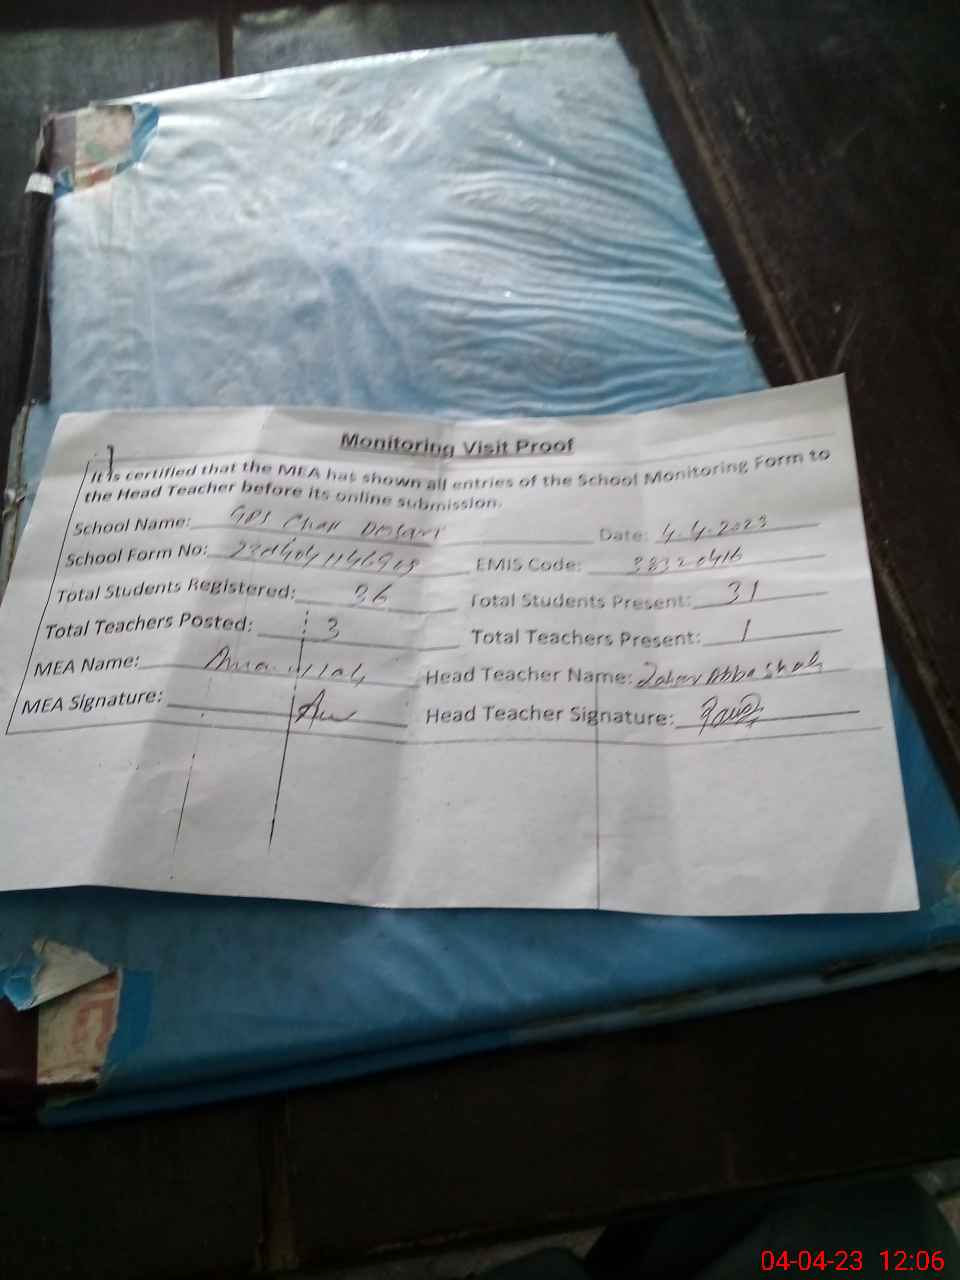 Monitoring Visit Proof
It is certified that the MEA has shown all entries of the School Monitoring Form to
the Head Teacher before its online submission.
School Name: GPS Chah Date: 4.4.2023
School Form No: EMIS Code: 38320416
Total Students Registered: 36 Total Students Present: 31
Total Teachers Posted: 3 Total Teachers Present: 1
MEA Name: Head Teacher Name: Shah
MEA Signature: Head Teacher Signature:
04-04-23 12:06